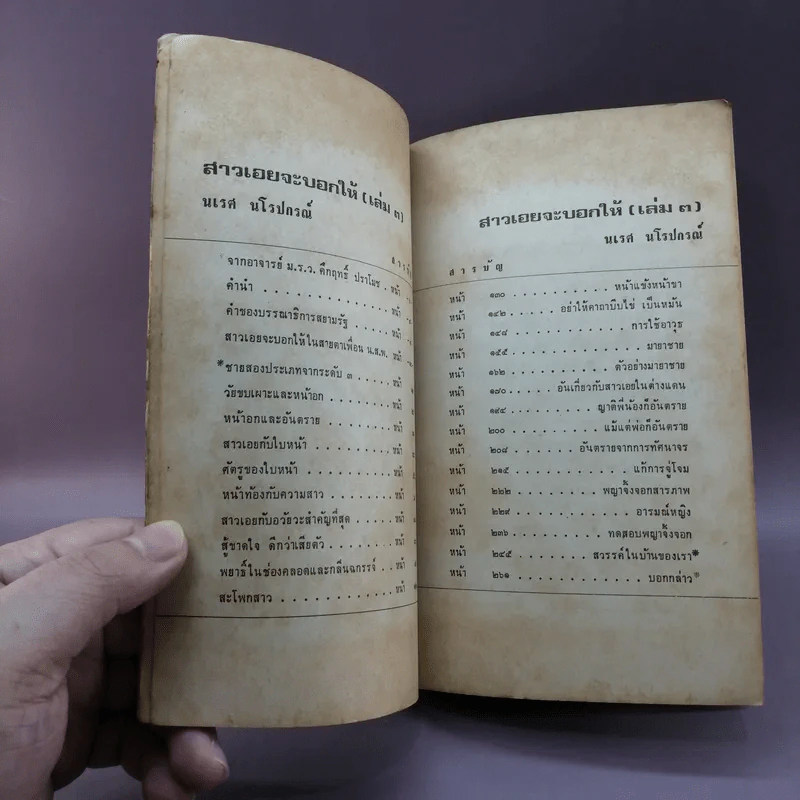 สาวเอยจะบอกให้ (เล่ม ๓)
นเรศ นโรปกรณ์
จากอาจารย์ ม.ร.ว. คึกฤทธิ์ ปราโมช . หน้า
คำนำ . . . . . . . . . . . . หน้า
คำของบรรณาธิการสยามรัฐ . . . . หน้า
สาวเอยจะบอกให้ในสายตาเพื่อน น.ส.พ. หน้า
*ชายสองประเภทจากระดับ ๓ . . . . . หน้า
วัยขบเผาะและหน้าอก . . . . . . หน้า
หน้าอกและอันตราย . . . . . . . หน้า
สาวเอยกับใบหน้า . . . . . . . . หน้า
ศัตรูของใบหน้า . . . . . . . . . หน้า
หน้าท้องกับความสาว . . . . . . . หน้า
สาวเอยกับอวัยวะสำคัญที่สุด . . . . หน้า
สู้ขาดใจ ดีกว่าเสียตัว . . . . . . หน้า
พยาธิ์ในช่องคลอดและกลิ่นฉกรรจ์ . . หน้า
สะโพกสาว . . . . . . . . . . หน้า
สาวเอยจะบอกให้ (เล่ม ๓)
นเรศ นโรปกรณ์
สารบัญ
หน้า ๑๓๐ . . . . . . . . . หน้าแข้งหน้าขา
หน้า ๑๔๒ . . . . อย่าให้คาถาบีบไข่ เป็นหมัน
หน้า ๑๔๘ . . . . . . . . . . การใช้อาวุธ
หน้า ๑๕๕ . . . . . . . . . . . มายาชาย
หน้า ๑๖๒ . . . . . . . . . ตัวอย่างมายาชาย
หน้า ๑๗๐ . . . . . อันเกี่ยวกับสาวเอยในต่างแดน
หน้า ๑๙๔ . . . . . . . . ญาติพี่น้องก็อันตราย
หน้า ๒๐๐ . . . . . . . . . แม้แต่พ่อก็อันตราย
หน้า ๒๐๘ . . . . . . . อันตรายจากการทัศนาจร
หน้า ๒๑๕ . . . . . . . . . . แก้การจู่โจม
หน้า ๒๒๒ . . . . . . . พญาจิ้งจอกสารภาพ
หน้า ๒๒๙ . . . . . . . . . . อารมณ์หญิง
หน้า ๒๓๖ . . . . . . . . ทดสอบพญาจิ้งจอก
หน้า ๒๔๕ . . . . . . . สวรรค์ในบ้านของเรา*
หน้า ๒๖๑ . . . . . . . . . . บอกกล่าว*